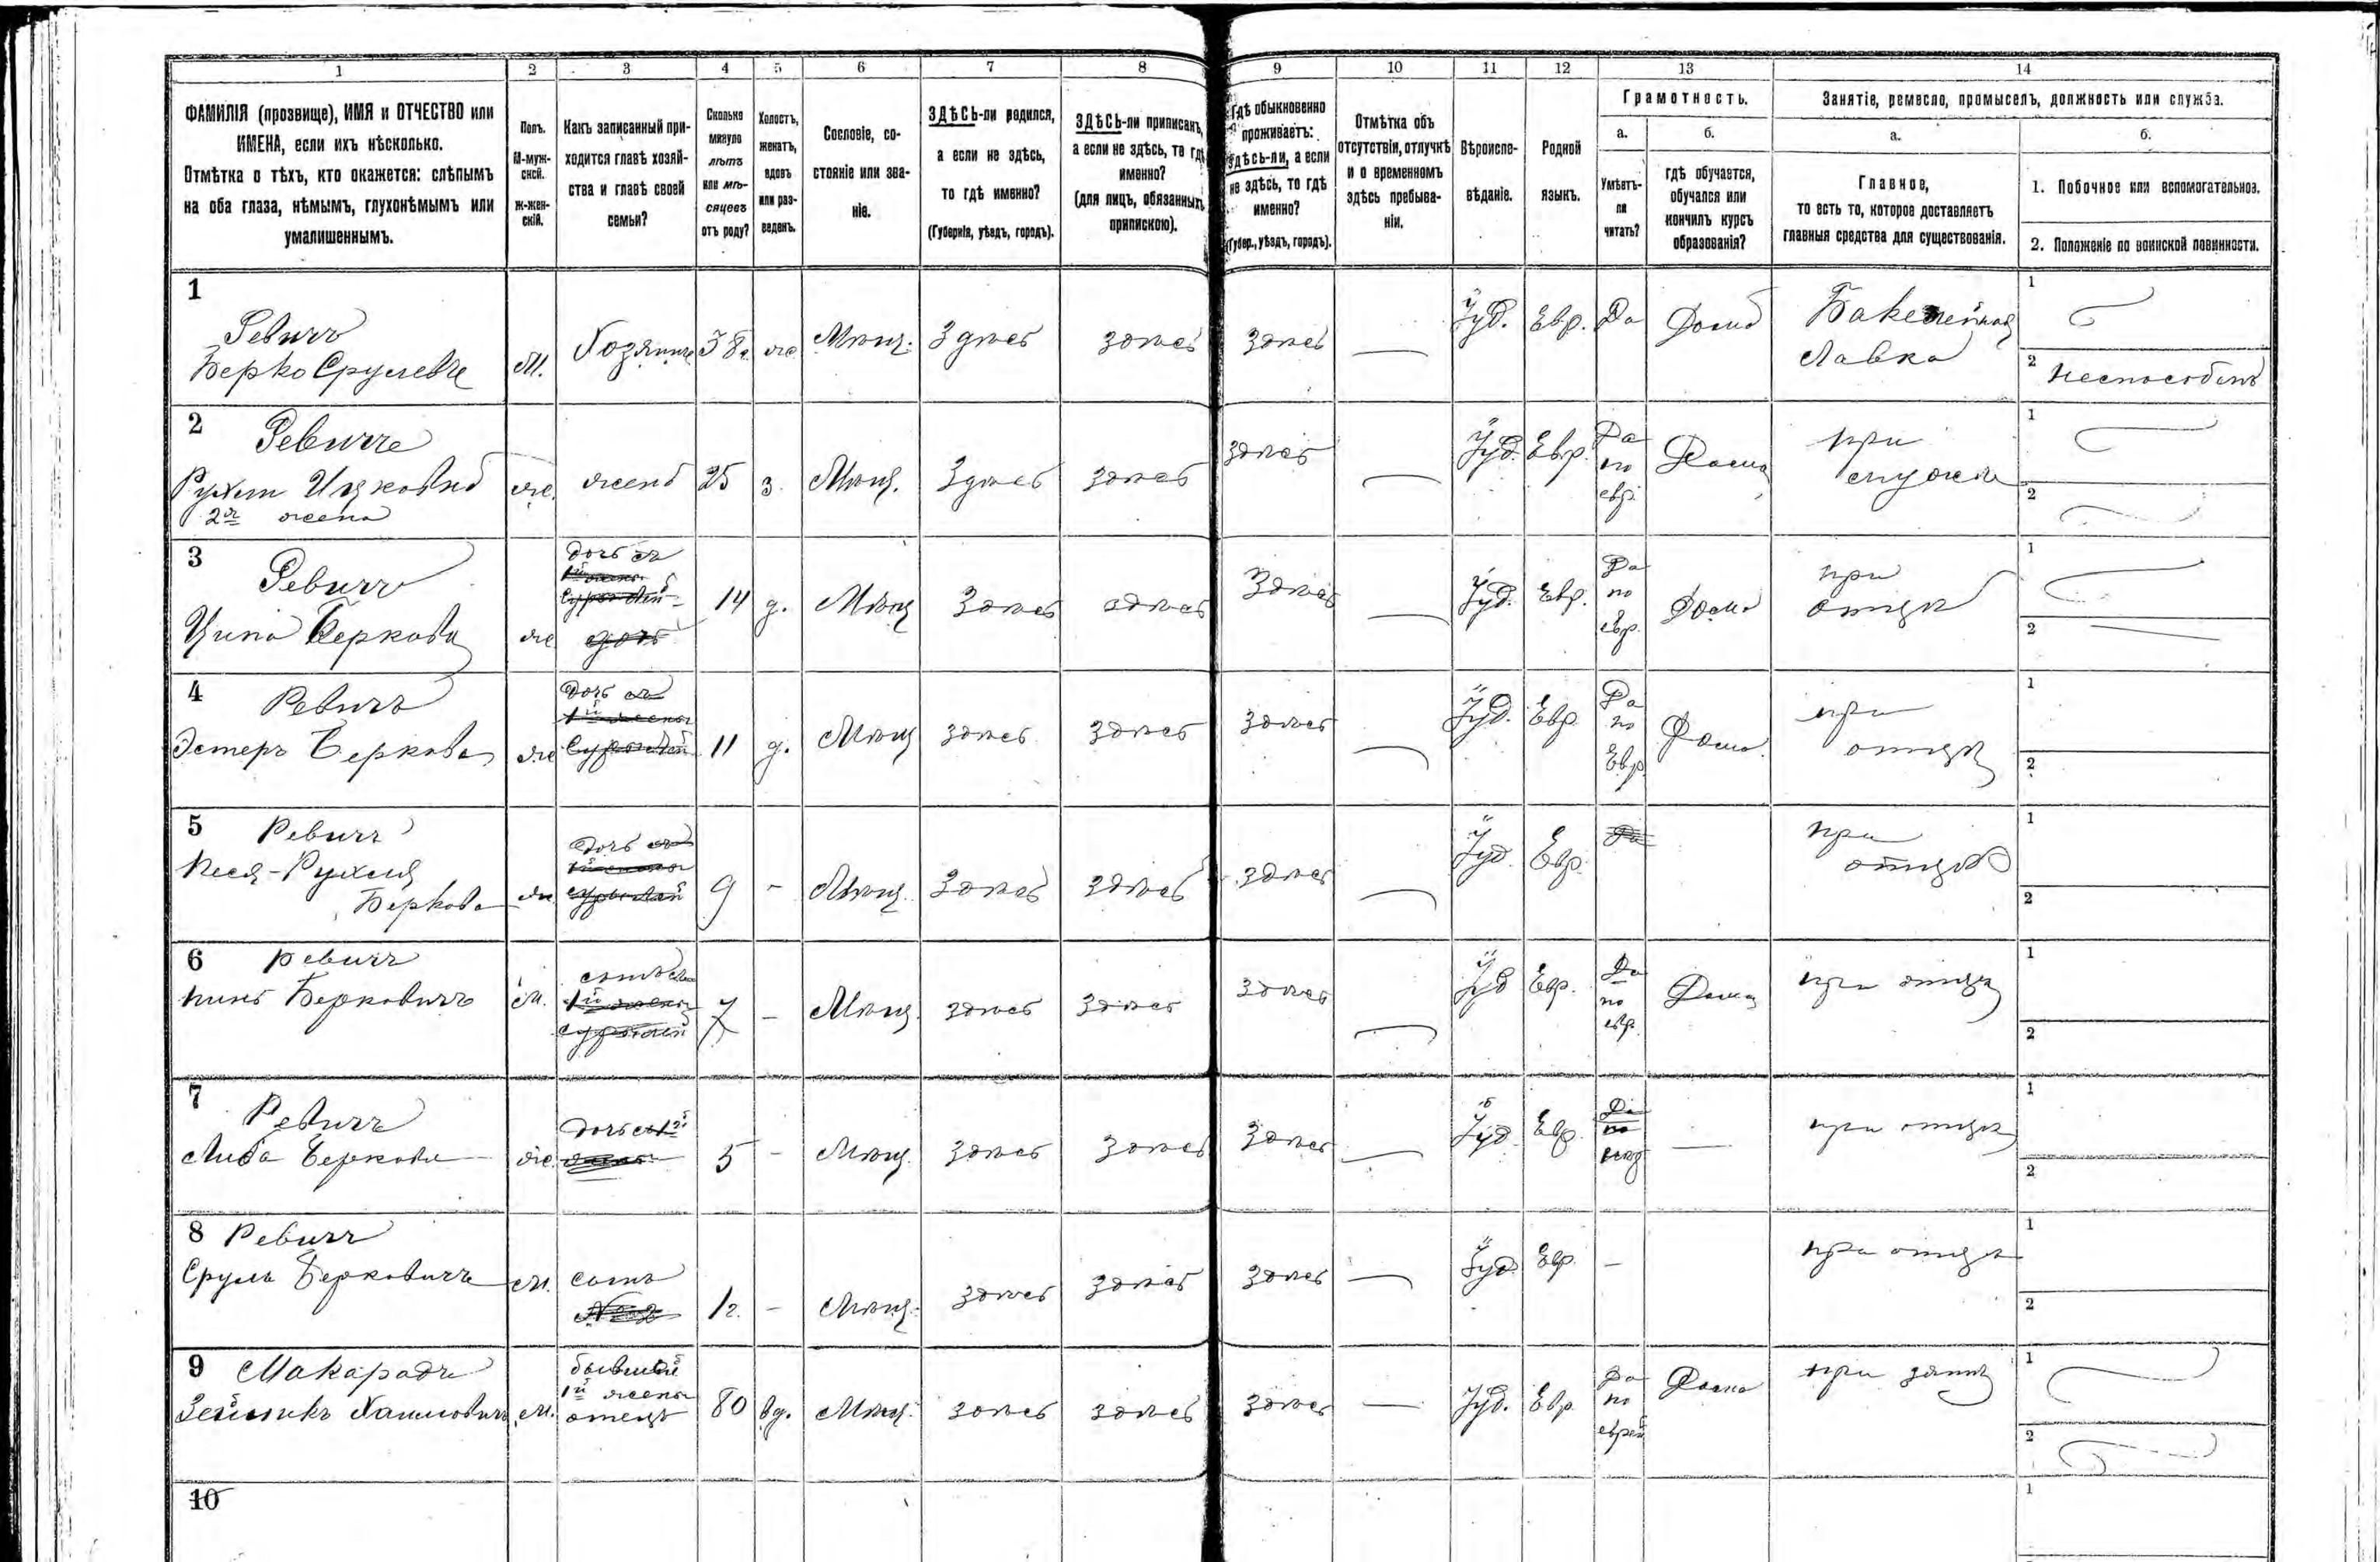 1 2 3 4 5 6 7 8 9 10 11 12 13 14
ФАМИЛІЯ (прозвище), ИМЯ и ОТЧЕСТВО или
ИМЕНА, если ихъ нѣсколько.
Отмѣтка о тѣхъ, кто окажется: слѣпымъ
на оба глаза, нѣмымъ, глухонѣмымъ или
умалишеннымъ.
Полъ.
М-муж-
ской.
Ж-жен-
скій.
Какъ записанный при-
ходится главѣ хозяй-
ства и главѣ своей
семьи?
Сколько
минуло
лѣтъ
или мѣ-
сяцевъ
отъ роду?
Холостъ,
женатъ,
вдовъ
или раз-
веденъ.
Сословіе, со-
стояніе или зва-
ніе.
ЗДѢСЬ-ли родился,
а если не здѣсь,
то гдѣ именно?
(Губернія, уѣздъ, городъ).
ЗДѢСЬ-ли приписанъ,
а если не здѣсь, то гдѣ
именно?
(для лицъ, обязанныхъ
припискою).
Гдѣ обыкновенно
проживаетъ:
здѣсь-ли, а если
не здѣсь, то гдѣ
именно?
(Губер., уѣздъ, городъ).
Отмѣтка объ
отсутствіи, отлучкѣ
и о временномъ
здѣсь пребыва-
ніи.
Вѣроиспо-
вѣданіе.
Родной
языкъ.
Грамотность.
а.
Умѣетъ-
ли
читать?
б.
гдѣ обучается,
обучался или
кончилъ курсъ
образованія?
Занятіе, ремесло, промыселъ, должность или служба.
а.
Главное,
то есть то, которое доставляетъ
главныя средства для существованія.
б.
1. Побочное или вспомогательное.
2. Положеніе по воинской повинности.
1
Ревичъ
Берко Срулевъ
М. Хозяинъ 38 ж Мѣщ. Здѣсь здѣсь здѣсь Іуд. Евр. Да Дома
лавка
1
2 Неспособенъ
2
Ревичъ
Ицковна
2я жена
ж. жена 25 з. Мѣщ. Здѣсь здѣсь здѣсь Іуд. Евр.
Да
по
евр.
Дома
при
мужѣ
1
2
3
Ревичъ
Ципа Беркова
ж
дочь
14 д. Мѣщ здѣсь здѣсь здѣсь Іуд. Евр.
Да
по
евр.
Дома
при
отцѣ
1
2
4
Ревичъ
Эстеръ Беркова
ж
дочь
11 д. Мѣщ здѣсь здѣсь здѣсь Іуд. Евр
Да
по
Евр.
Дома.
при
отцѣ
1
2
5 Ревичъ
Песя-Рухля
Беркова
ж
дочь
9 - Мѣщ. здѣсь здѣсь здѣсь Іуд Евр. Да
при
отцѣ
1
2
6 Ревичъ
Беркovичъ
М.
сынъ
7 - Мѣщ. здѣсь здѣсь здѣсь Іуд Евр.
Да
по
евр.
Дома
при отцѣ
1
2
7
Ревичъ
Либа Беркова
ж
дочь
5 - Мѣщ. здѣсь здѣсь здѣсь Іуд. Евр.
Да
по
при отцѣ
1
2
8 Ревичъ
Сруль Берковичъ
М.
сынъ
- Мѣщ. здѣсь здѣсь здѣсь Іуд. Евр. -
при отцѣ
1
2
9 Макарадъ
Хаимовичъ
М.
бывшей
1й жены
отецъ
80 вд. Мѣщ. здѣсь здѣсь здѣсь Іуд. Евр.
Да
по
еврей
Дома
при зятѣ
1
2
10
1